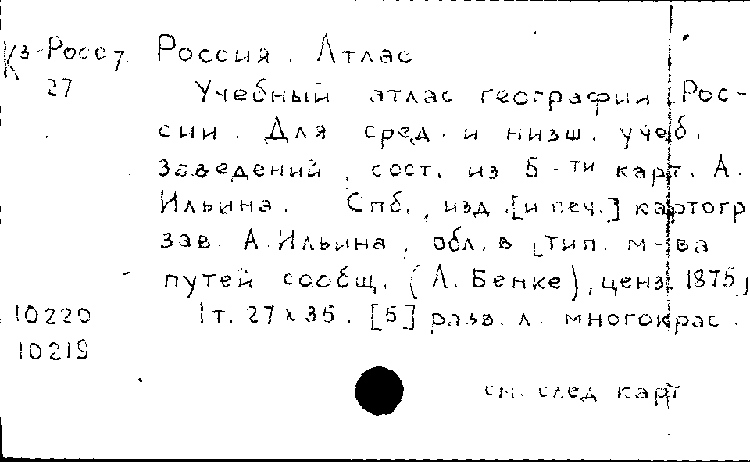 Кз-Росс 7 Россия. Атлас
27 Учебный атлас географии Рос-
сии. Для сред. и низш. учеб.
заведений, сост. из 5-ти карт. А.
Ильина. Спб., изд. [и печ.] картогр.
зав. А. Ильина, обл. в [тип. м-ва
путей сообщ. (А. Бенке), ценз. 1875]
10220 1 т. 27х35. [5] разв. л. многокрас.
10219
см. след карт